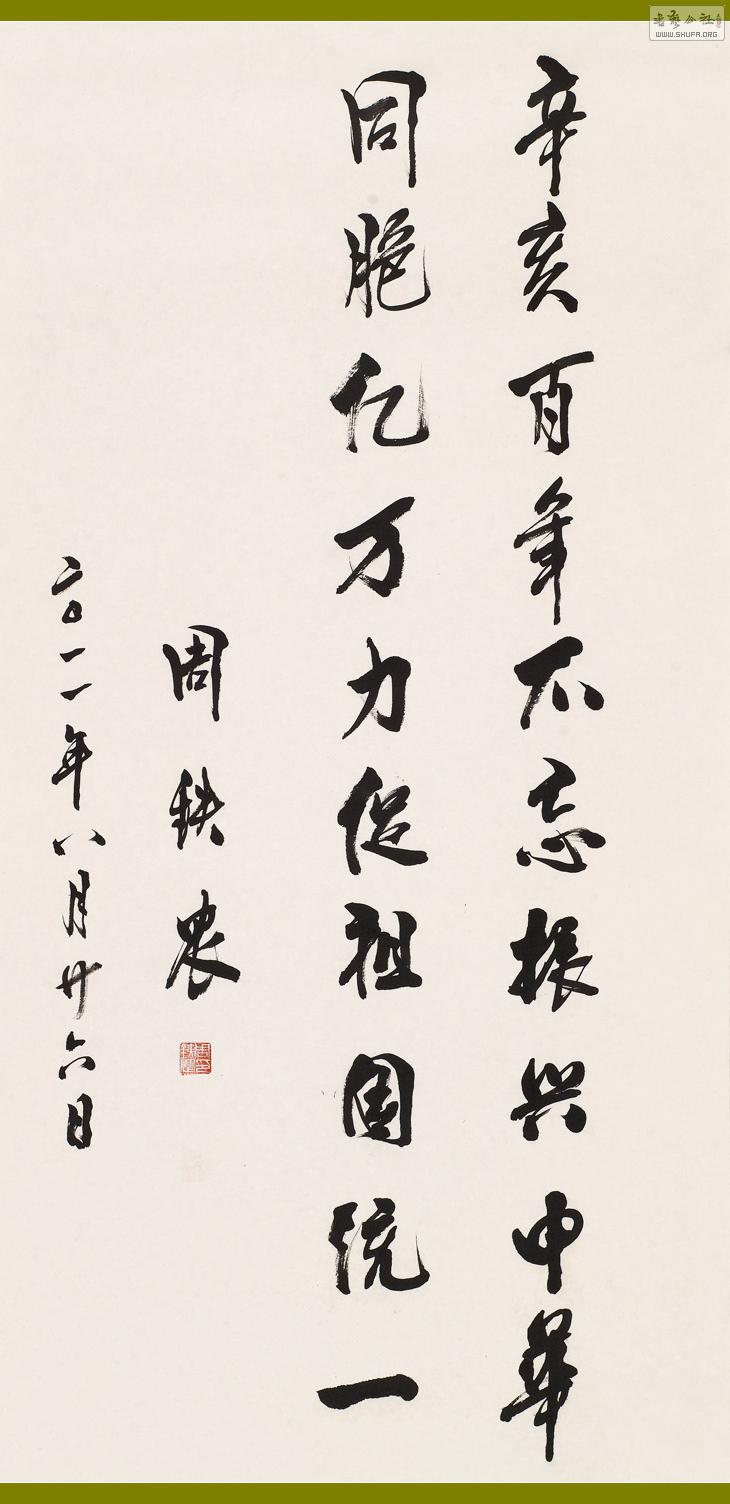 辛亥百年不忘振兴中華
同胞亿万力促祖国统一
周铁农
二〇一一年八月廿六日
WWW.SHUFA.ORG